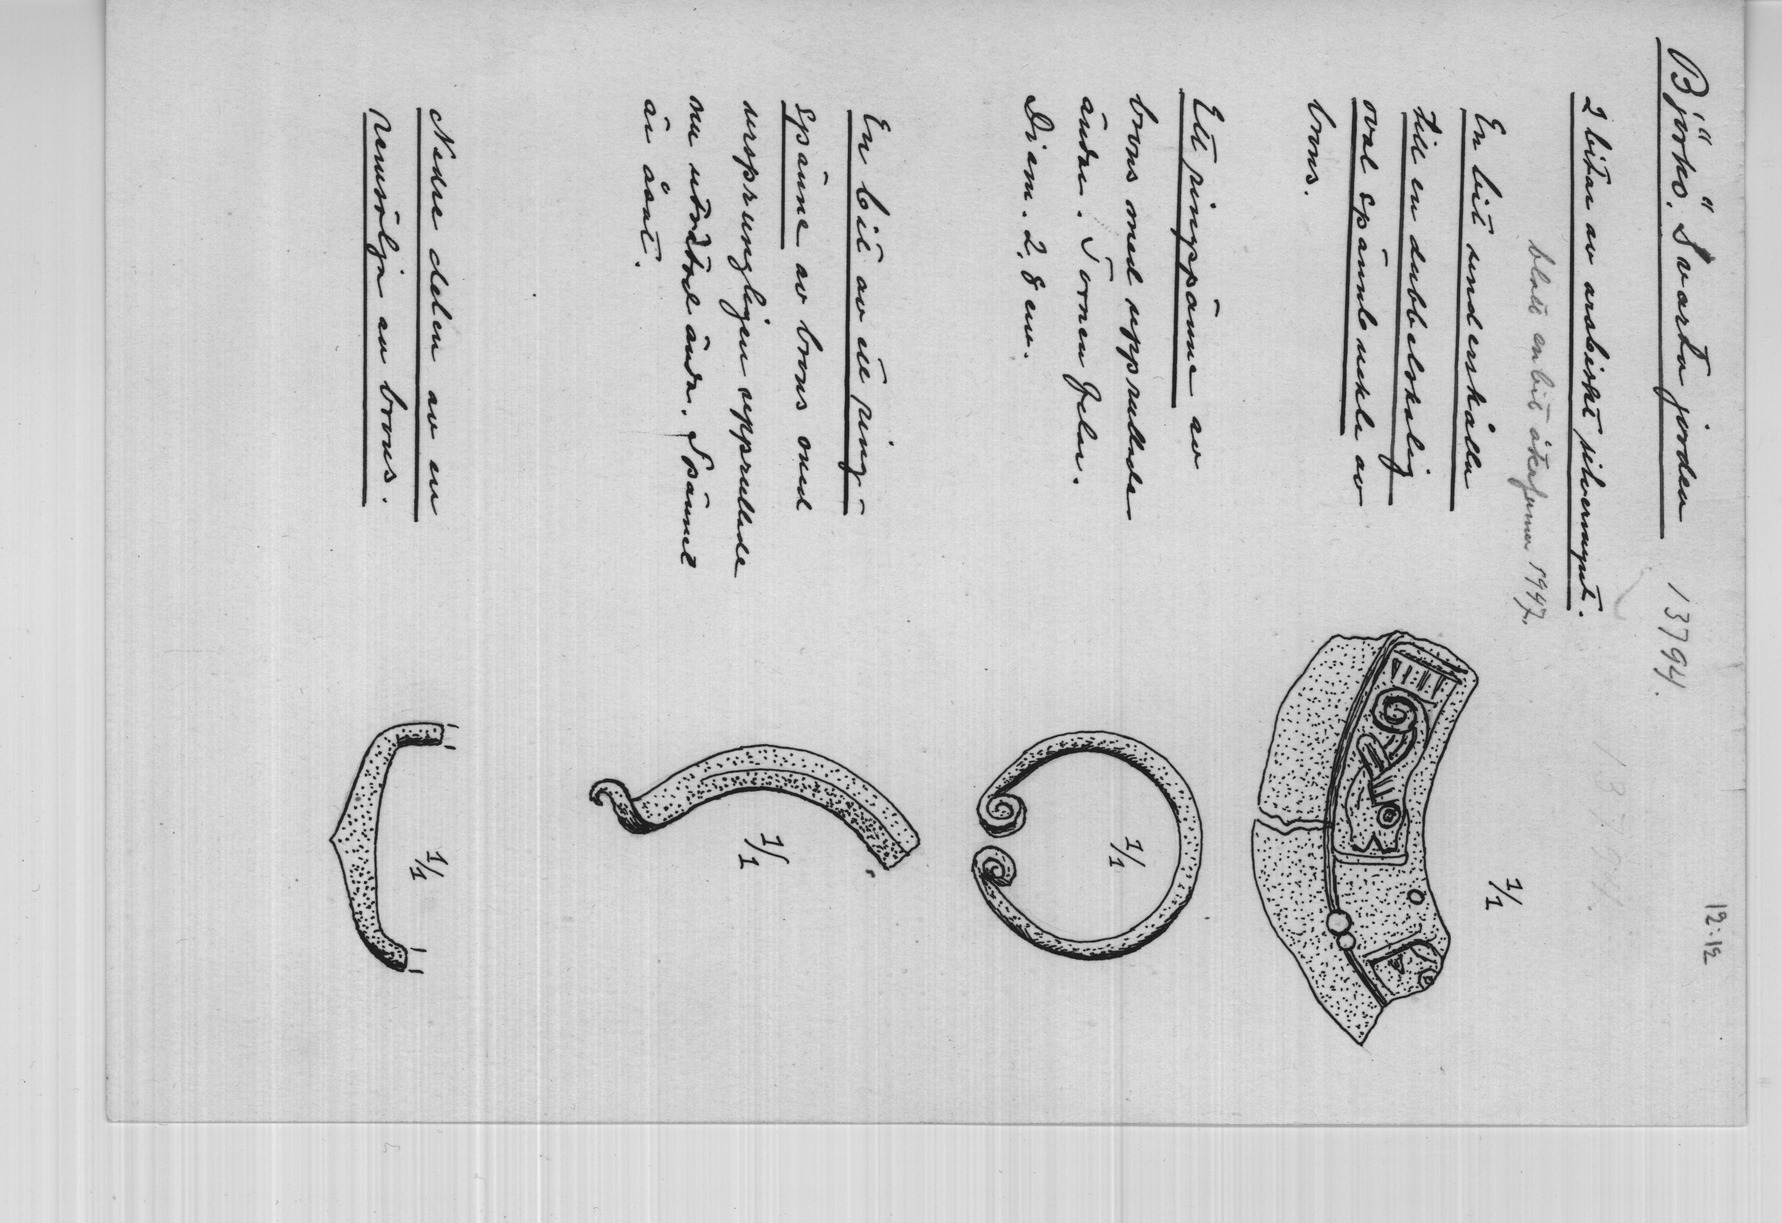 12:12
Björkö. Svarta jorden 13794.
2 bitar av arabiskt silvermynt.
blott en bit återfunnen 1947.
En bit underskålla
till en dubbelskalig
oval spännbuckla av
brons.
1/1
Ett ringspänne av
brons med upprullade
ändar. Tornen felar.
Diam. 2,8 cm.
1/1
En bit av ett ring-
spänne av brons med
ursprungligen upprullade
nu uträtad ända. Spännet
är åsat.
1/1
Nedre delen av en
remsölja av brons.
1/1